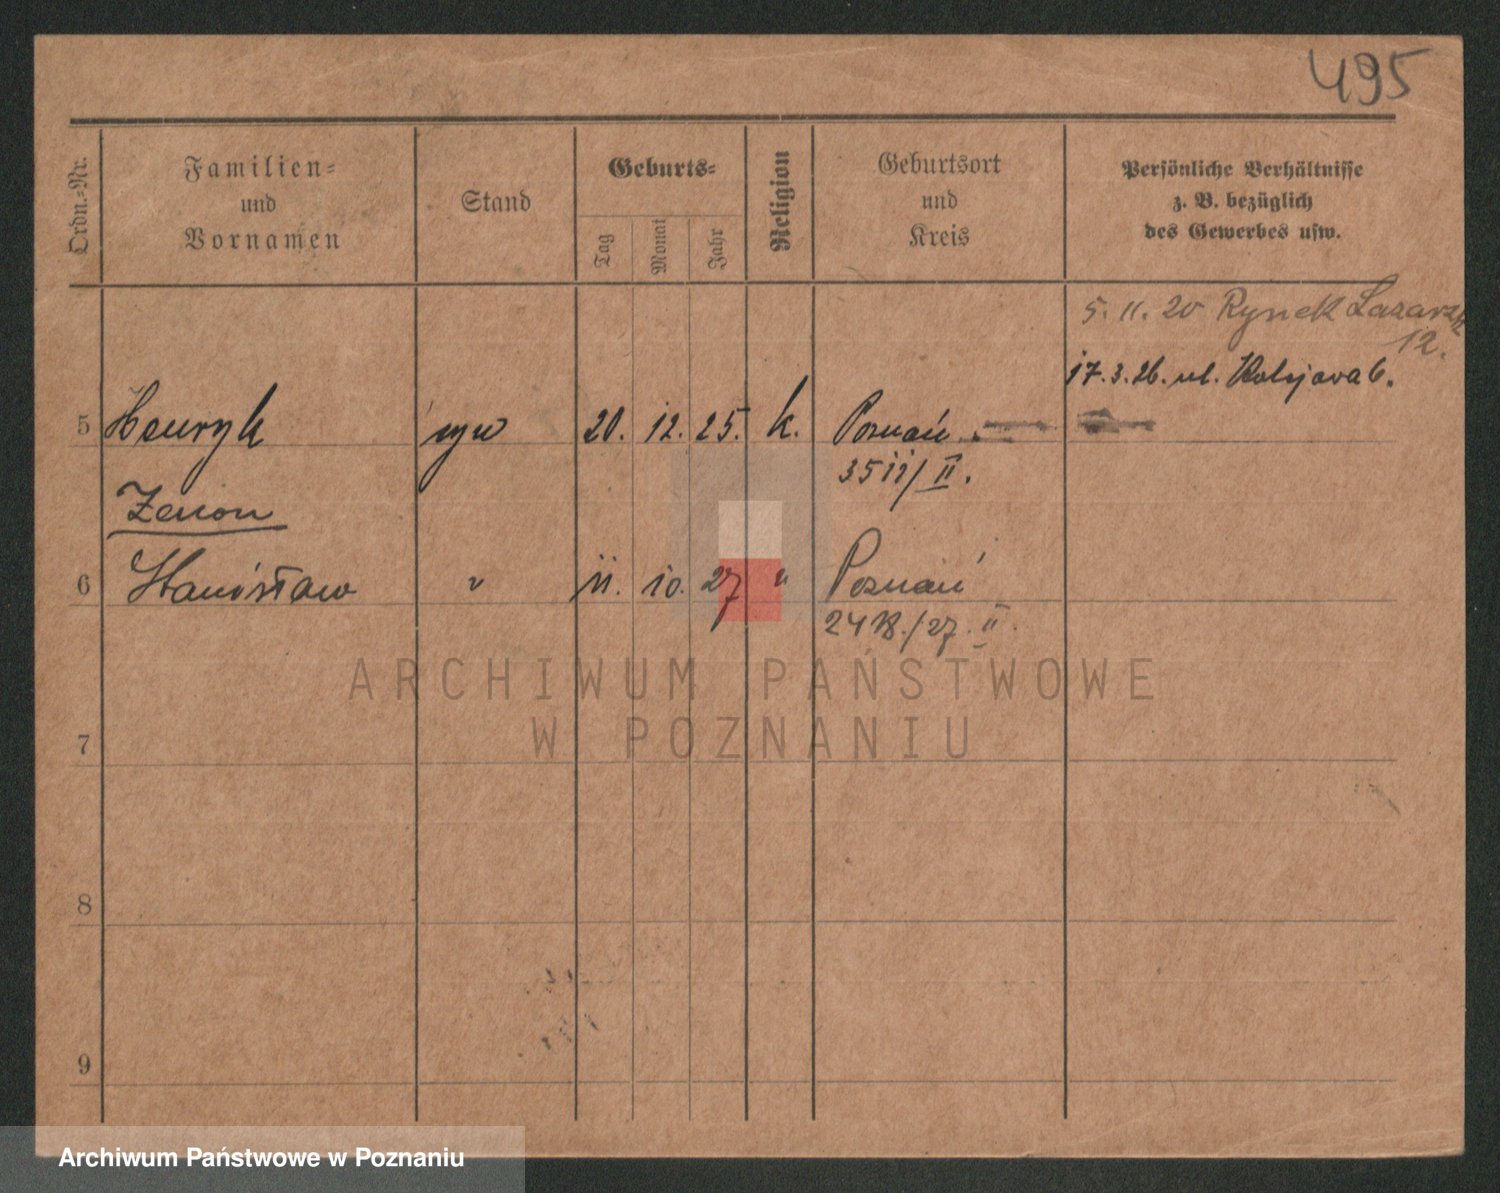 495
Ordn.-Nr.
Familien-
und
Vornamen
Stand
Geburts-
Tag
Monat
Jahr
Religion
Geburtsort
und
Kreis
Persönliche Verhältnisse
z. B. bezüglich
des Gewerbes usw.
5. 11. 20 Rynek Lazarsk
12.
17. 3. 26. ul.
5 Henryk syn 20. 12. 25. k. Poznań
3511/II.
Zenon
6 Stanisław " 11. 10. 27 " Poznań
2418./27. II.
7
8
9
ARCHIWUM PAŃSTWOWE
W POZNANIU
Archiwum Państwowe w Poznaniu